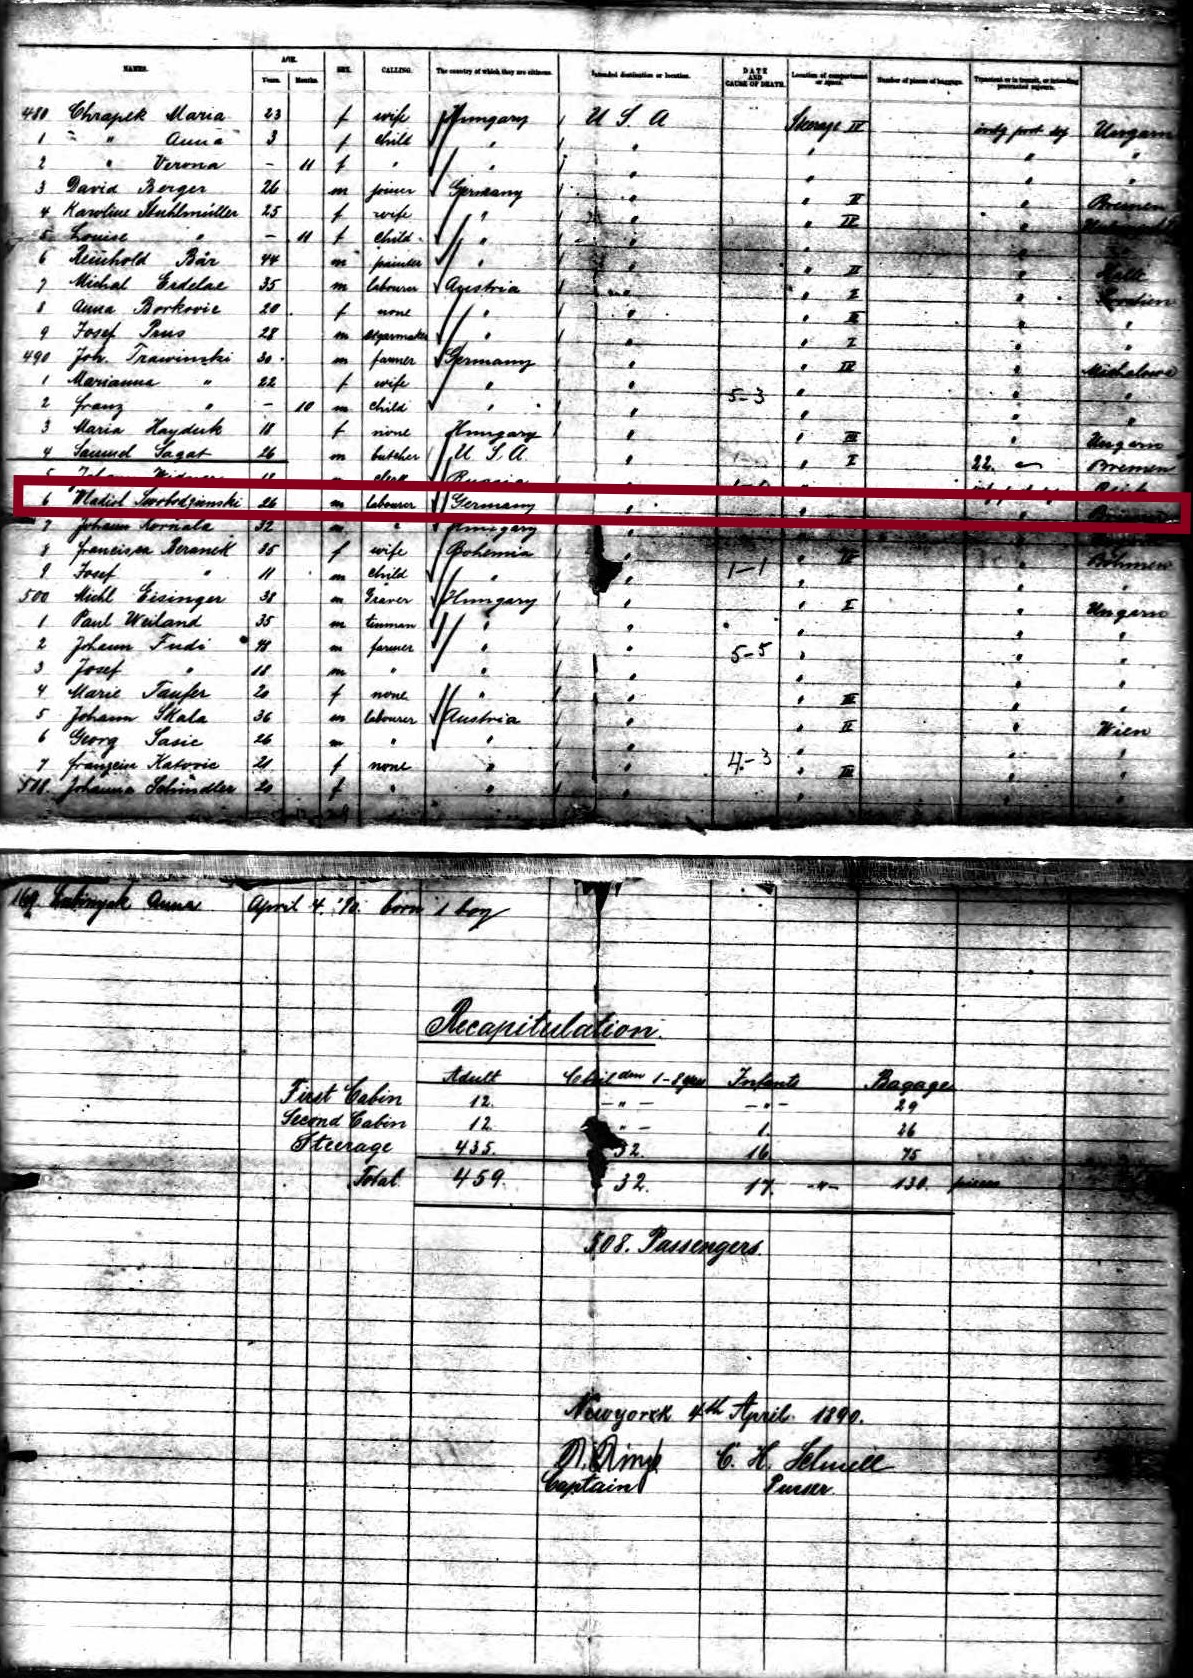 NAMES. AGE. SEX. CALLING. The country of which they are citizens. Intended destination or location. DATE AND CAUSE OF DEATH. Location of compartment or space. Number of pieces of baggage. Transient or in transit, or intending protracted sojourn.
Years. Months.
480 Chrapek Maria 23 f wife Hungary U S A Steerage IV Ungarn
1 " " Anna 3 f child " " " " "
2 " Verona – 11 f " " " " " "
3 David Berger 26 m joiner Germany " " II " Bremen
4 Karoline Stuhlmüller 25 f wife " " " IV "
5 Louise " – 11 f child " " " "
6 Reinhold Bär 44 m painter " " " II " Halle
7 Michal Erdelac 35 m labourer Austria " " I "
8 Anna Borkovic 20 f none " " " " "
9 Josef Prus 28 m segarmaker " " " I " "
490 Joh. Trawinski 30 m farmer Germany " " IV "
1 Marianna " 22 f wife " " 5-3 " " "
2 Franz " – 10 m child " " " " "
3 Maria Hayduk 18 f none Hungary " " III " Ungarn
4 Samuel Sagat 26 m butcher U S A " " I 22. Bremen
5 Johann 18 m clerk Russia
6 Wladisl 26 m labourer Germany " "
7 Johann Kornata 32 m " Hungary
8 Francisca Beranek 35 f wife Bohemia " " IV " Böhmen
9 Josef " 11 m child " " 1-1 " " "
500 Michl Eisinger 38 m Graver Hungary " " I " Ungarn
1 Paul Weiland 35 m tinman " " " " "
2 Johann Fudi 48 m farmer " " 5-5 " " "
3 Josef " 18 m " " " " " "
4 Marie Taufer 20 f none " " " III " "
5 Johann Skala 36 m labourer Austria " " II " Wien
6 Georg Sasic 26 m " " " " " "
7 Katovic 21 f none " " 4-3 " III " "
508. Johanna Schindler 20 f " " " " " "
169 Anna April 4. '90. born 1 boy
Recapitulation.
Adult Children 1-8 years Infants Bagage
First Cabin 12. – " – – " – 29
Second Cabin 12 " – 1. 26
Steerage 435. 32. 16 75
Total 459. 32. 17. – " – 130. pieces
508. Passengers.
Newyork 4th April 1890.
C. H.
Captain Purser